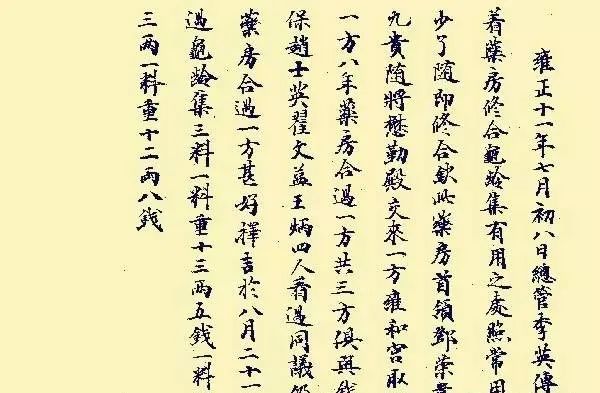 雍正十一年七月初八日總管李英傳
着藥房修合龜齡集有用之處照常用
少了随即修合欽此藥房首領鄧榮
九貴随將懋勤殿交來一方雍和宮取
一方八年藥房合過一方共三方俱與錢
保趙士英翟文益王炳四人看過同議
藥房合過一方甚好擇吉於八月二十一
過龜齡集三料一料重十三兩五錢一料
三兩一料重十二兩八錢